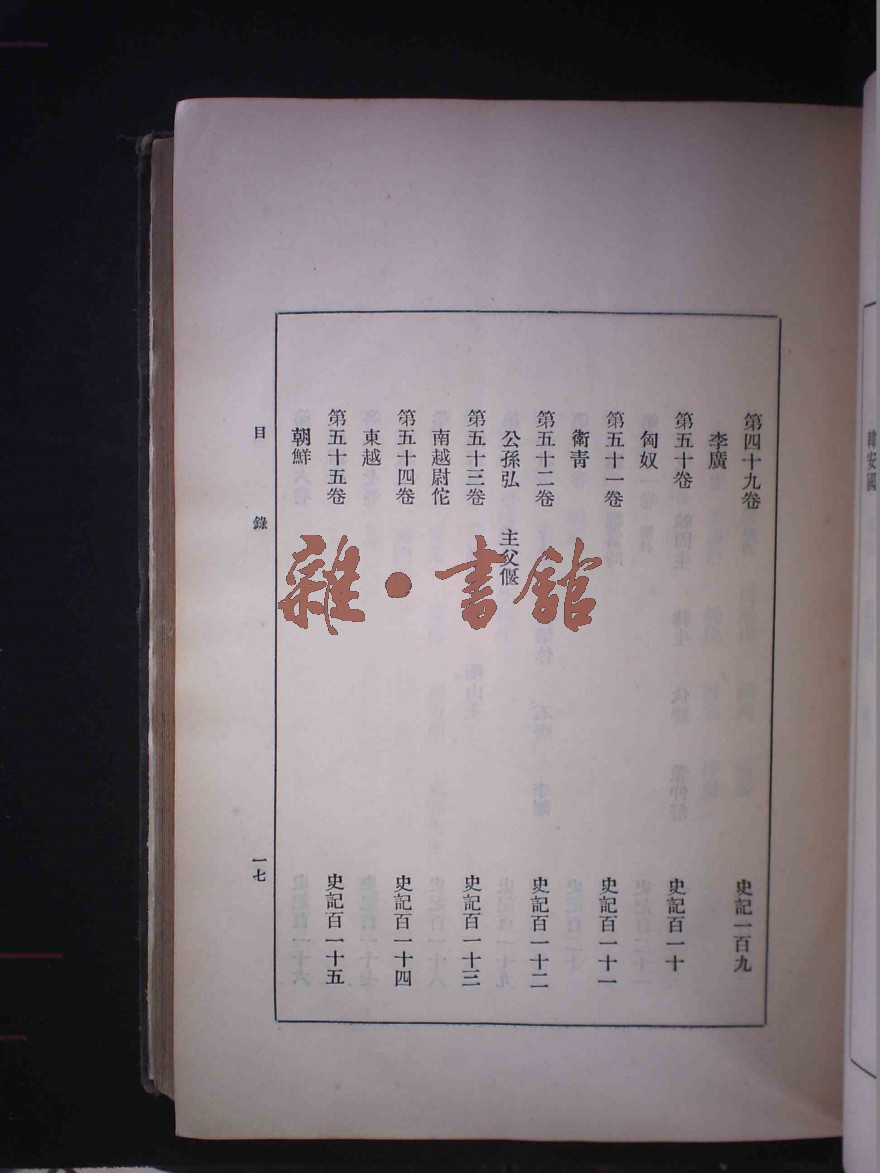 韓安國
第四十九卷 史記一百九
李廣
第五十卷 史記百一十
匈奴
第五十一卷 史記百一十一
衛青
第五十二卷 史記百一十二
公孫弘 主父偃
第五十三卷 史記百一十三
南越尉佗
第五十四卷 史記百一十四
東越
第五十五卷 史記百一十五
朝鮮
目錄 一七
雜·書館